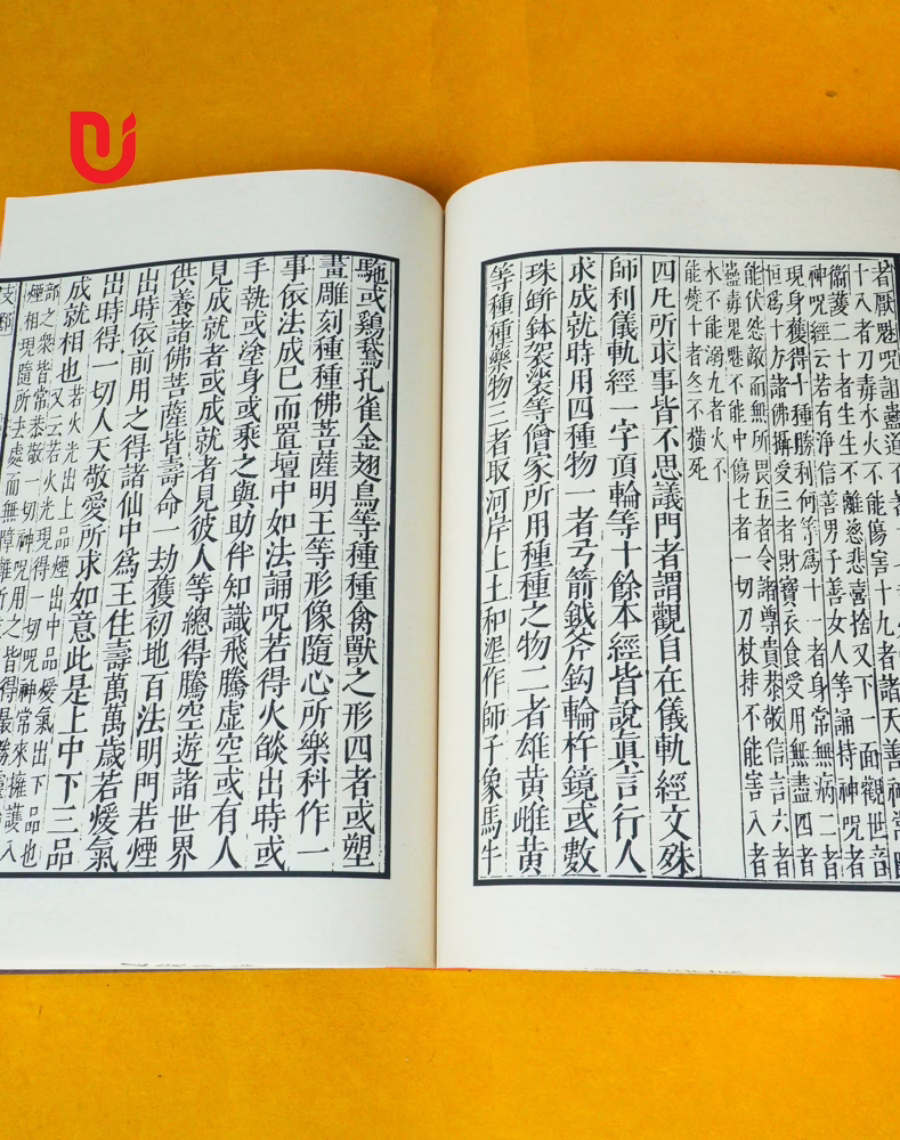 者厭魅呪詛蠱道不
十入者刀毒水火不能傷害十九者諸天善神常
衞護二十者生生不離慈悲喜捨又下一面觀世音
神呪經云若有淨信善男子善女人等誦持神呪者
現身獲得十種勝利何等爲十一者身常無病二者
恒爲十方諸佛攝受三者財寶衣食受用無盡四者
能伏怨敵而無所畏五者令諸尊貴恭敬信言六者
蠱毒鬼魅不能中傷七者一切刀杖持不能害入者
水不能溺九者火不
能燒十者冬不橫死
四凡所求事皆不思議門者謂觀自在儀軌經文殊
師利儀軌經一字頂輪等十餘本經皆說眞言行人
求成就時用四種物一者弓箭鉞斧鈎輪杵鏡或數
珠缾鉢袈裟等僧家所用種種之物二者雄黃雌黃
等種種藥物三者取河岸上土和埿作師子象馬牛
駞或鷄鵞孔雀金翅鳥等種種禽獸之形四者或塑
畫雕刻種種佛菩薩明王等形像隨心所樂科作一
事依法成巳而置壇中如法誦呪若得火燄出時或
手執或塗身或乘之與助伴知識飛騰虚空或有人
見成就者或成就者見彼人等總得騰空遊諸世界
供養諸佛菩薩皆壽命一劫獲初地百法明門若煙
出時依前用之得諸仙中爲王住壽萬萬歲若煖氣
出時得一切人天敬愛所求如意此是上中下三品
成就相也
若火光出上品煙出中品煖氣出下品也
又云若火光現得一切呪神常來擁護入
部之衆皆常恭敬一切神呪用之皆得最勝
煙相現隨所去處而無障難所